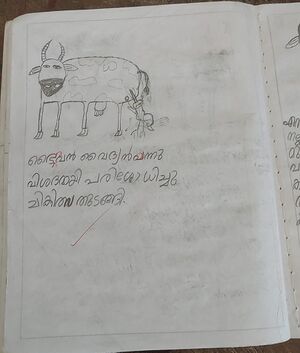 വൈദ്യൻവന്നു
വിശദമായി പരിശോധിച്ചു
ചികിത്സ തുടങ്ങി.